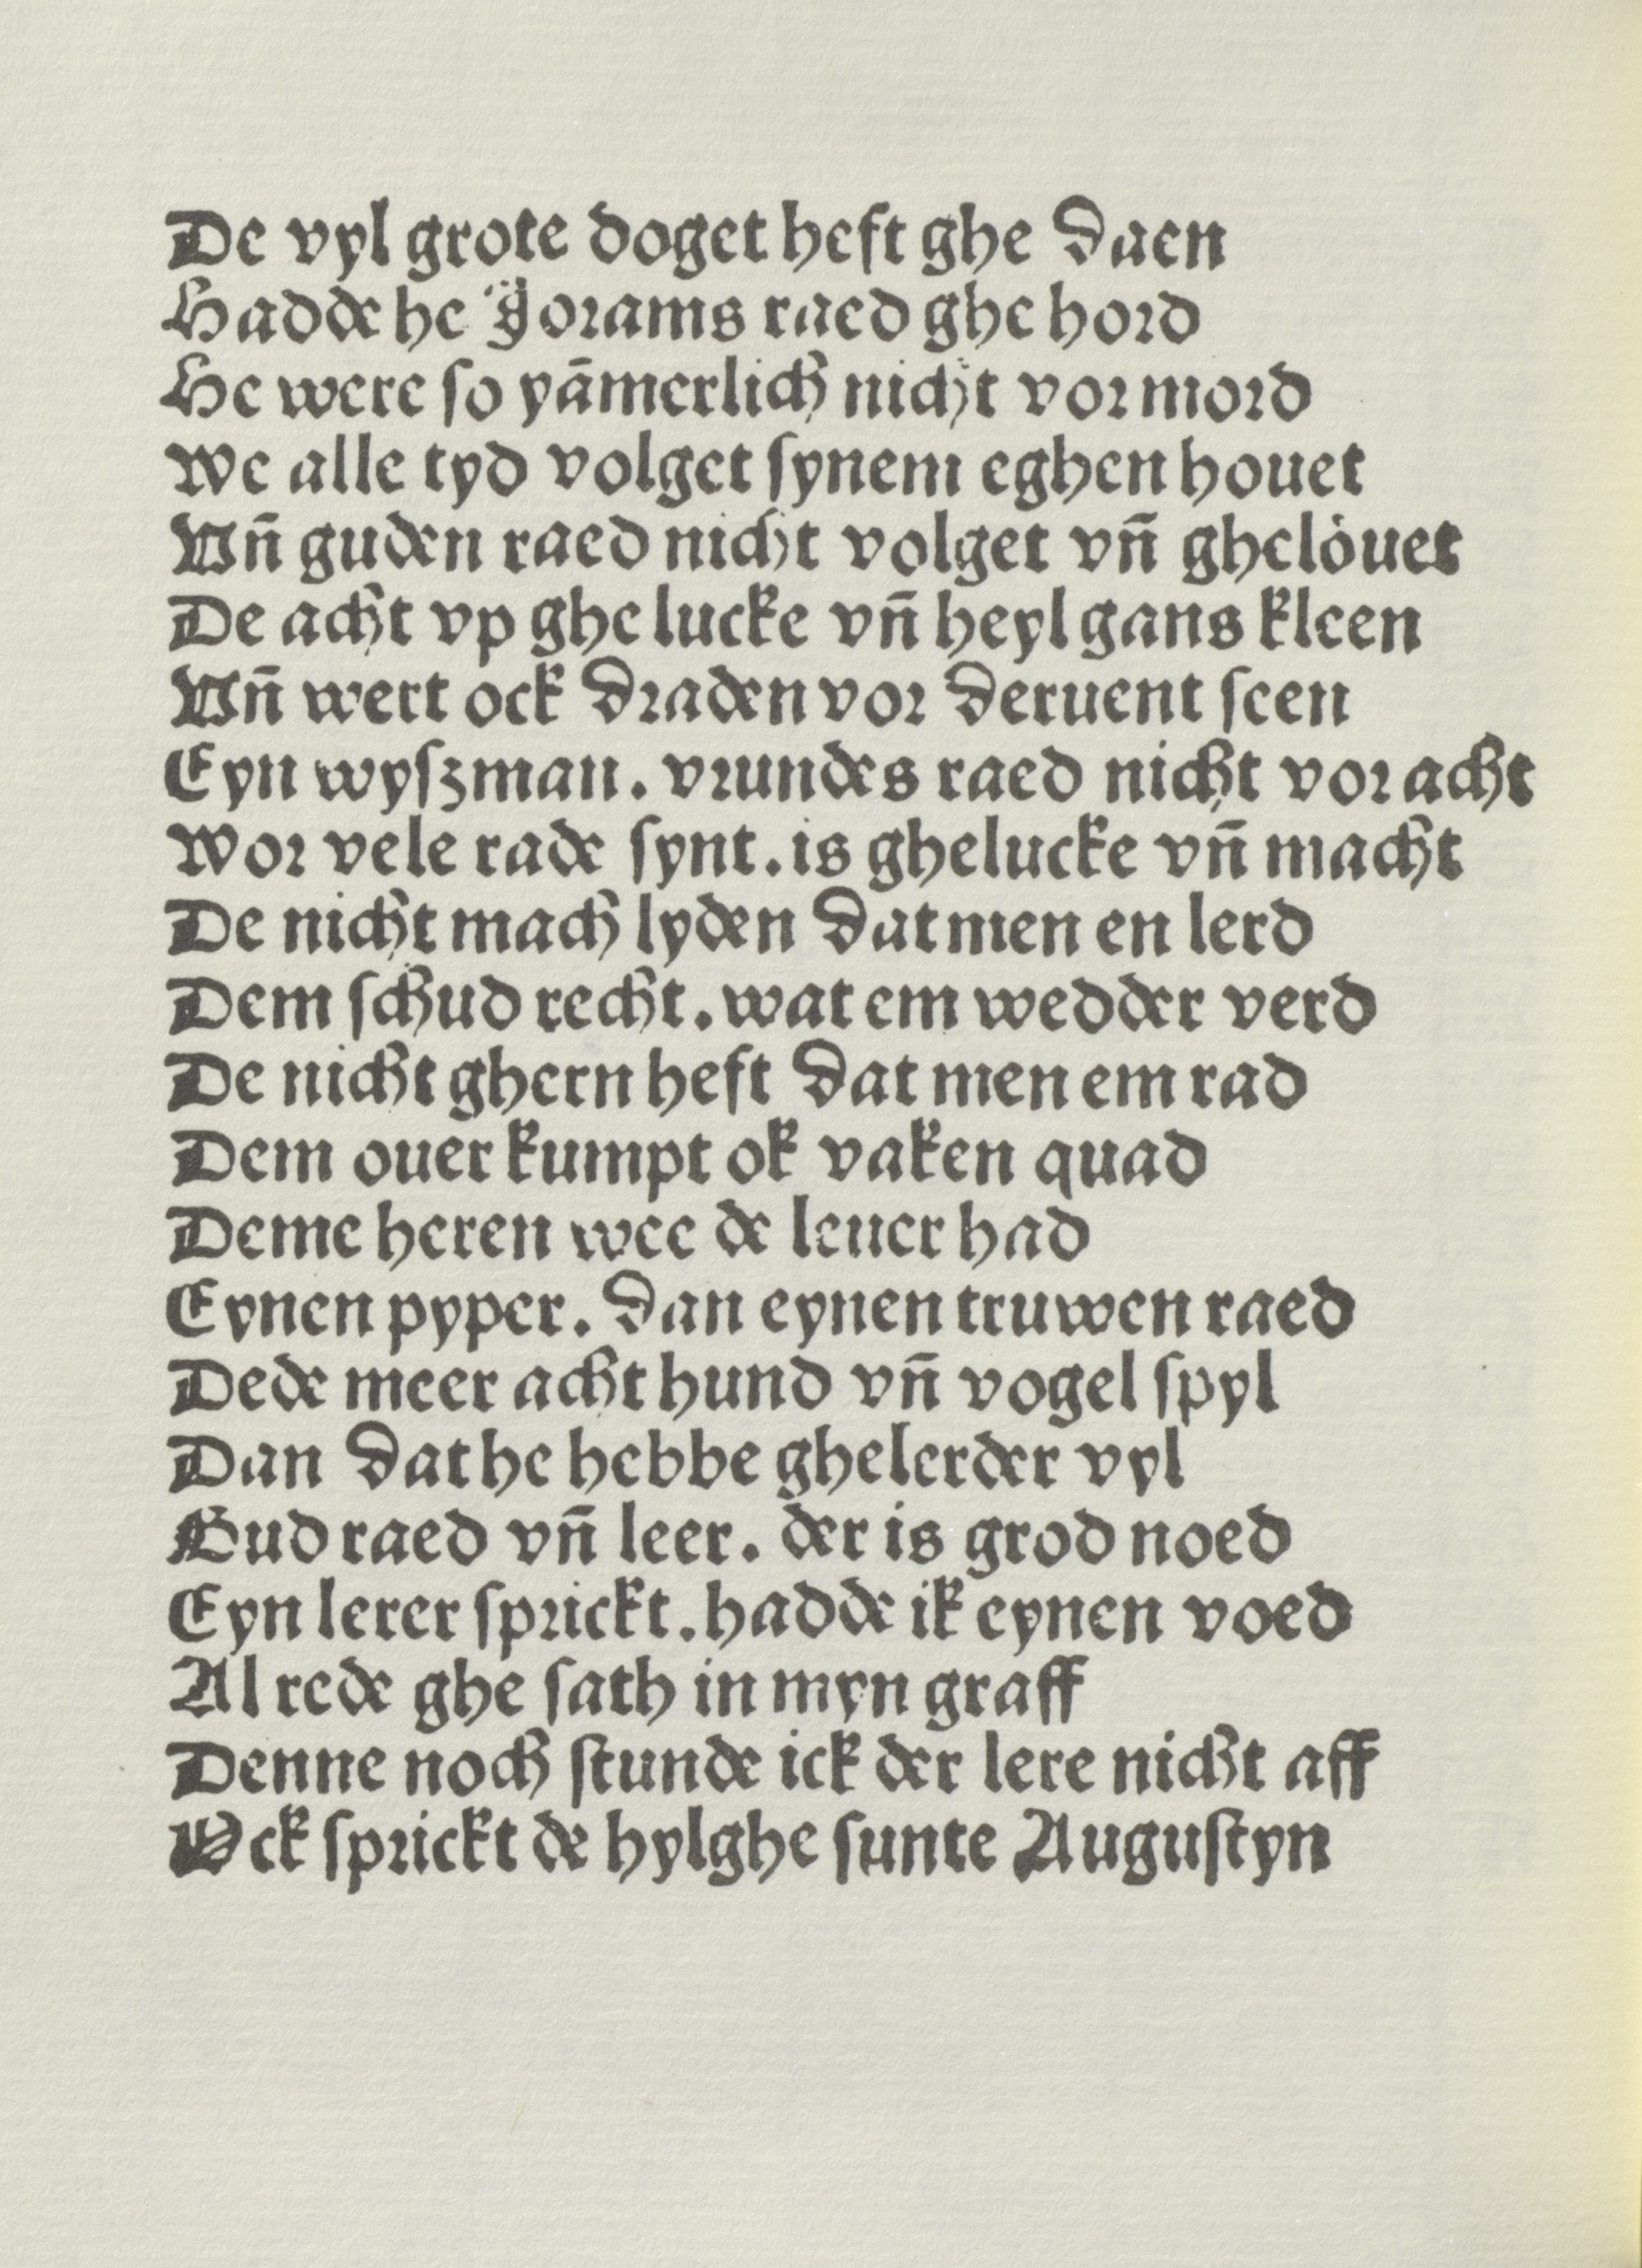 De vyl grote doget heft ghe daen
Hadde he Ÿorams raed ghe hord
He were so yāmerlich nicht vor mord
We alle tyd volget ſynem eghen houet
Vn̄ guden raed nicht volget vn̄ ghelöuet
De acht vp ghe lucke vn̄ heyl gans kleen
Vn̄ wert ock draden vor deruent ſeen
Eyn wyſzman. vrundes raed nicht vor acht
Wor vele rade ſynt. is ghelucke vn̄ macht
De nicht mach lyden dat men en lerd
Dem ſchud recht. wat em wedder verd
De nicht ghern heft dat men em rad
Dem ouer kumpt ok vaken quad
Deme heren wee de leuer had
Eynen pyper. dan eynen truwen raed
Dede meer acht hund vn̄ vogel ſpyl
Dan dat he hebbe ghelerder vyl
Gud raed vn̄ leer. der is grod noed
Eyn lerer ſprickt. hadde ik eynen voed
Al rede ghe ſath in myn graff
Denne noch ſtunde ick der lere nicht aff
Ock ſprickt de hylghe ſunte Auguſtyn